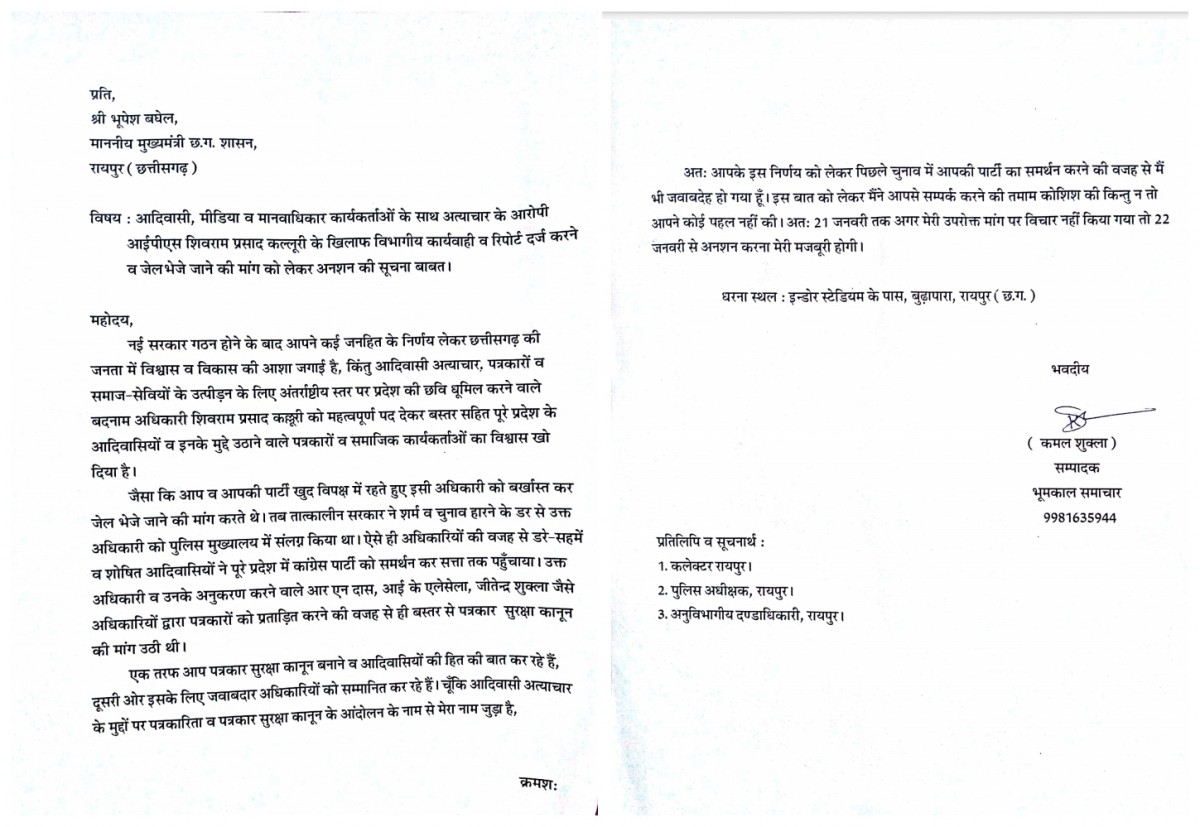 प्रति,
श्री भूपेश बघेल,
माननीय मुख्यमंत्री छ.ग. शासन,
रायपुर ( छत्तीसगढ़ )
विषय : आदिवासी, मीडिया व मानवाधिकार कार्यकर्ताओं के साथ अत्याचार के आरोपी
आईपीएस शिवराम प्रसाद कल्लूरी के खिलाफ विभागीय कार्यवाही व रिपोर्ट दर्ज करने
व जेल भेजे जाने की मांग को लेकर अनशन की सूचना बाबत।
महोदय,
नई सरकार गठन होने के बाद आपने कई जनहित के निर्णय लेकर छत्तीसगढ़ की
जनता में विश्वास व विकास की आशा जगाई है, किंतु आदिवासी अत्याचार, पत्रकारों व
समाज-सेवियों के उत्पीड़न के लिए अंतर्राष्ट्रीय स्तर पर प्रदेश की छवि धूमिल करने वाले
बदनाम अधिकारी शिवराम प्रसाद कल्लूरी को महत्वपूर्ण पद देकर बस्तर सहित पूरे प्रदेश के
आदिवासियों व इनके मुद्दे उठाने वाले पत्रकारों व समाजिक कार्यकर्ताओं का विश्वास खो
दिया है।
जैसा कि आप व आपकी पार्टी खुद विपक्ष में रहते हुए इसी अधिकारी को बर्खास्त कर
जेल भेजे जाने की मांग करते थे। तब तात्कालीन सरकार ने शर्म व चुनाव हारने के डर से उक्त
अधिकारी को पुलिस मुख्यालय में संलग्न किया था। ऐसे ही अधिकारियों की वजह से डरे-सहमें
व शोषित आदिवासियों ने पूरे प्रदेश में कांग्रेस पार्टी को समर्थन कर सत्ता तक पहुँचाया। उक्त
अधिकारी व उनके अनुकरण करने वाले आर एन दास, आई के एलेसेला, जीतेन्द्र शुक्ला जैसे
अधिकारियों द्वारा पत्रकारों को प्रताड़ित करने की वजह से ही बस्तर से पत्रकार सुरक्षा कानून
की मांग उठी थी।
एक तरफ आप पत्रकार सुरक्षा कानून बनाने व आदिवासियों की हित की बात कर रहे हैं,
दूसरी ओर इसके लिए जवाबदार अधिकारियों को सम्मानित कर रहे हैं। चूँकि आदिवासी अत्याचार
के मुद्दों पर पत्रकारिता व पत्रकार सुरक्षा कानून के आंदोलन के नाम से मेरा नाम जुड़ा है,
क्रमश:
अत: आपके इस निर्णय को लेकर पिछले चुनाव में आपकी पार्टी का समर्थन करने की वजह से मैं
भी जवाबदेह हो गया हूँ। इस बात को लेकर मैंने आपसे सम्पर्क करने की तमाम कोशिश की किन्तु न तो
आपने कोई पहल नहीं की। अत: 21 जनवरी तक अगर मेरी उपरोक्त मांग पर विचार नहीं किया गया तो 22
जनवरी से अनशन करना मेरी मजबूरी होगी।
धरना स्थल : इन्डोर स्टेडियम के पास, बुढ़ापारा, रायपुर ( छ.ग. )
भवदीय
( कमल शुक्ला )
सम्पादक
भूमकाल समाचार
9981635944
प्रतिलिपि व सूचनार्थ :
1. कलेक्टर रायपुर।
2. पुलिस अधीक्षक, रायपुर।
3. अनुविभागीय दण्डाधिकारी, रायपुर।